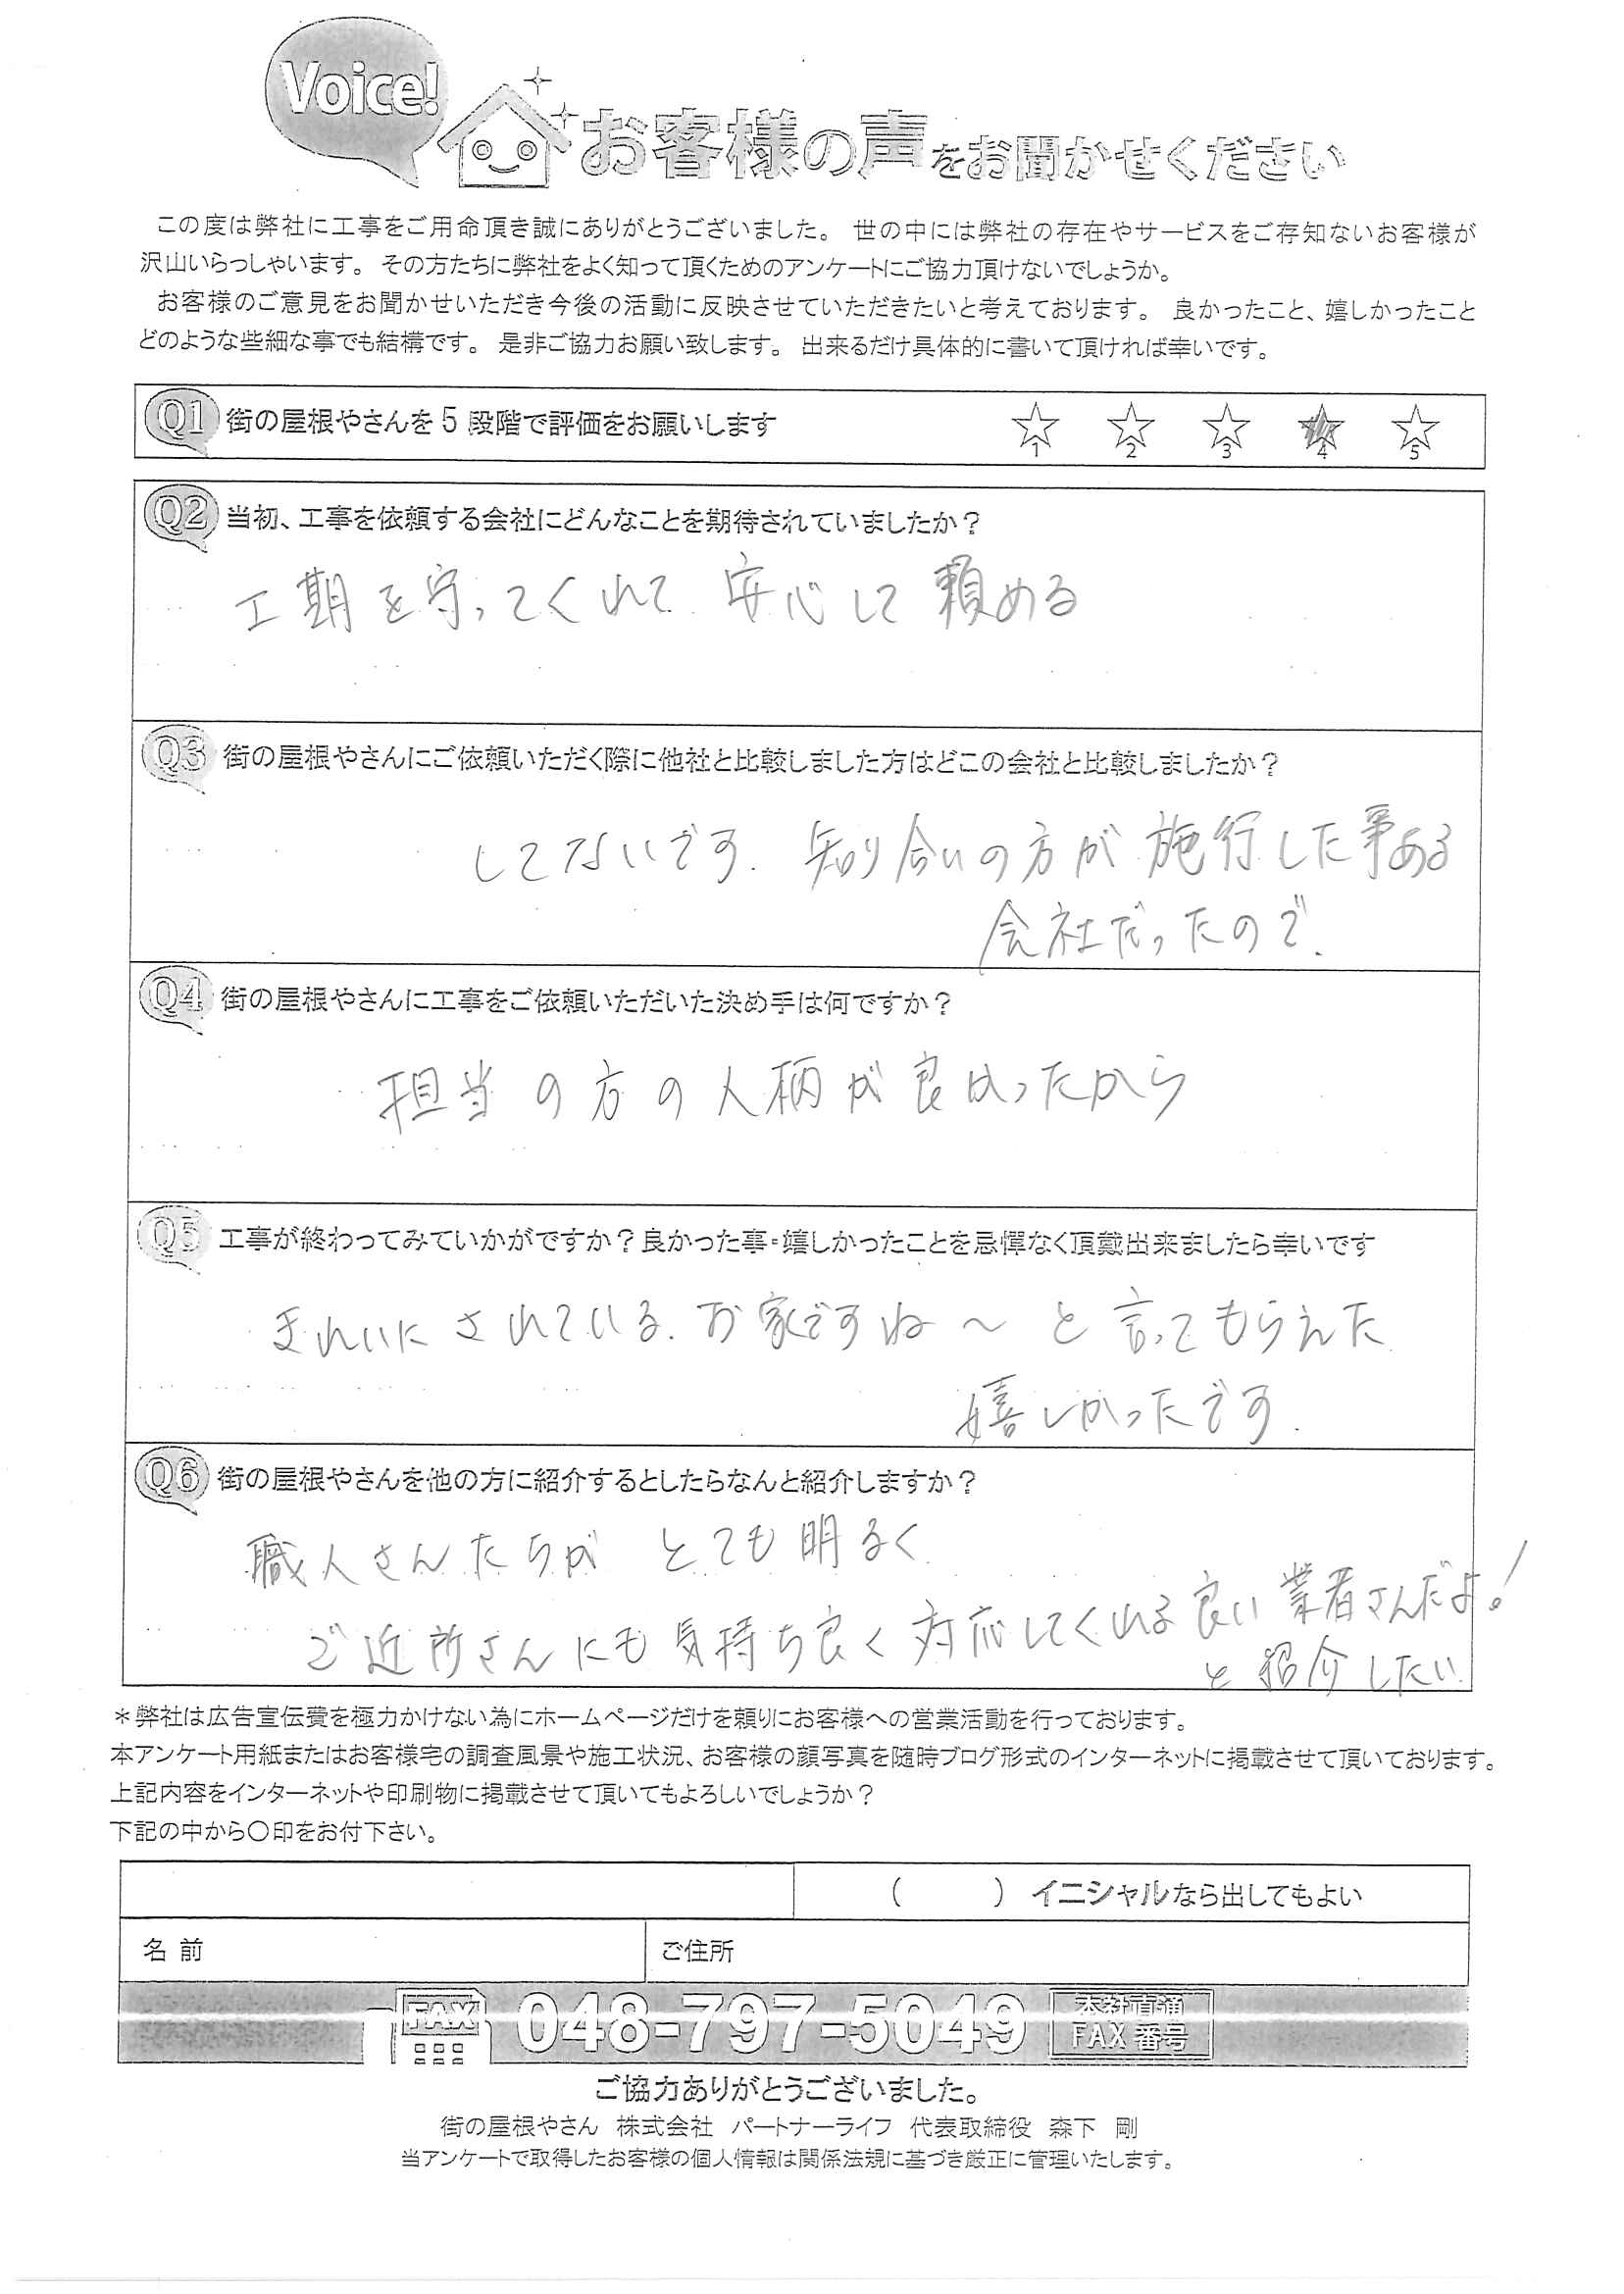 Voice!
お客様の声をお聞かせください
この度は弊社に工事をご用命頂き誠にありがとうございました。 世の中には弊社の存在やサービスをご存知ないお客様が
沢山いらっしゃいます。 その方たちに弊社をよく知って頂くためのアンケートにご協力頂けないでしょうか。
お客様のご意見をお聞かせいただき今後の活動に反映させていただきたいと考えております。 良かったこと、嬉しかったこと
どのような些細な事でも結構です。 是非ご協力お願い致します。 出来るだけ具体的に書いて頂ければ幸いです。
Q1 街の屋根やさんを5段階で評価をお願いします ☆1 ☆2 ☆3 ★4 ☆5
Q2 当初、工事を依頼する会社にどんなことを期待されていましたか？
工期を守ってくれて 安心して頼める
Q3 街の屋根やさんにご依頼いただく際に他社と比較しました方はどこの会社と比較しましたか？
してないです. 知り合いの方が施行した事ある
会社だったので.
Q4 街の屋根やさんに工事をご依頼いただいた決め手は何ですか？
担当の方の人柄が良かったから
Q5 工事が終わってみていかがですか？良かった事・嬉しかったことを忌憚なく頂戴出来ましたら幸いです
きれいにされている.お家ですね〜と言ってもらえた
嬉しかったです.
Q6 街の屋根やさんを他の方に紹介するとしたらなんと紹介しますか？
職人さんたちが とても明るく
ご近所さんにも気持ち良く対応してくれる良い業者さんだよ！
と紹介したい
＊弊社は広告宣伝費を極力かけない為にホームページだけを頼りにお客様への営業活動を行っております。
本アンケート用紙またはお客様宅の調査風景や施工状況、お客様の顔写真を随時ブログ形式のインターネットに掲載させて頂いております。
上記内容をインターネットや印刷物に掲載させて頂いてもよろしいでしょうか？
下記の中から〇印をお付下さい。
（　　　）イニシャルなら出してもよい
名 前 ご住所
FAX 048-797-5049 本社直通 FAX番号
ご協力ありがとうございました。
街の屋根やさん 株式会社 パートナーライフ 代表取締役 森下 剛
当アンケートで取得したお客様の個人情報は関係法規に基づき厳正に管理いたします。